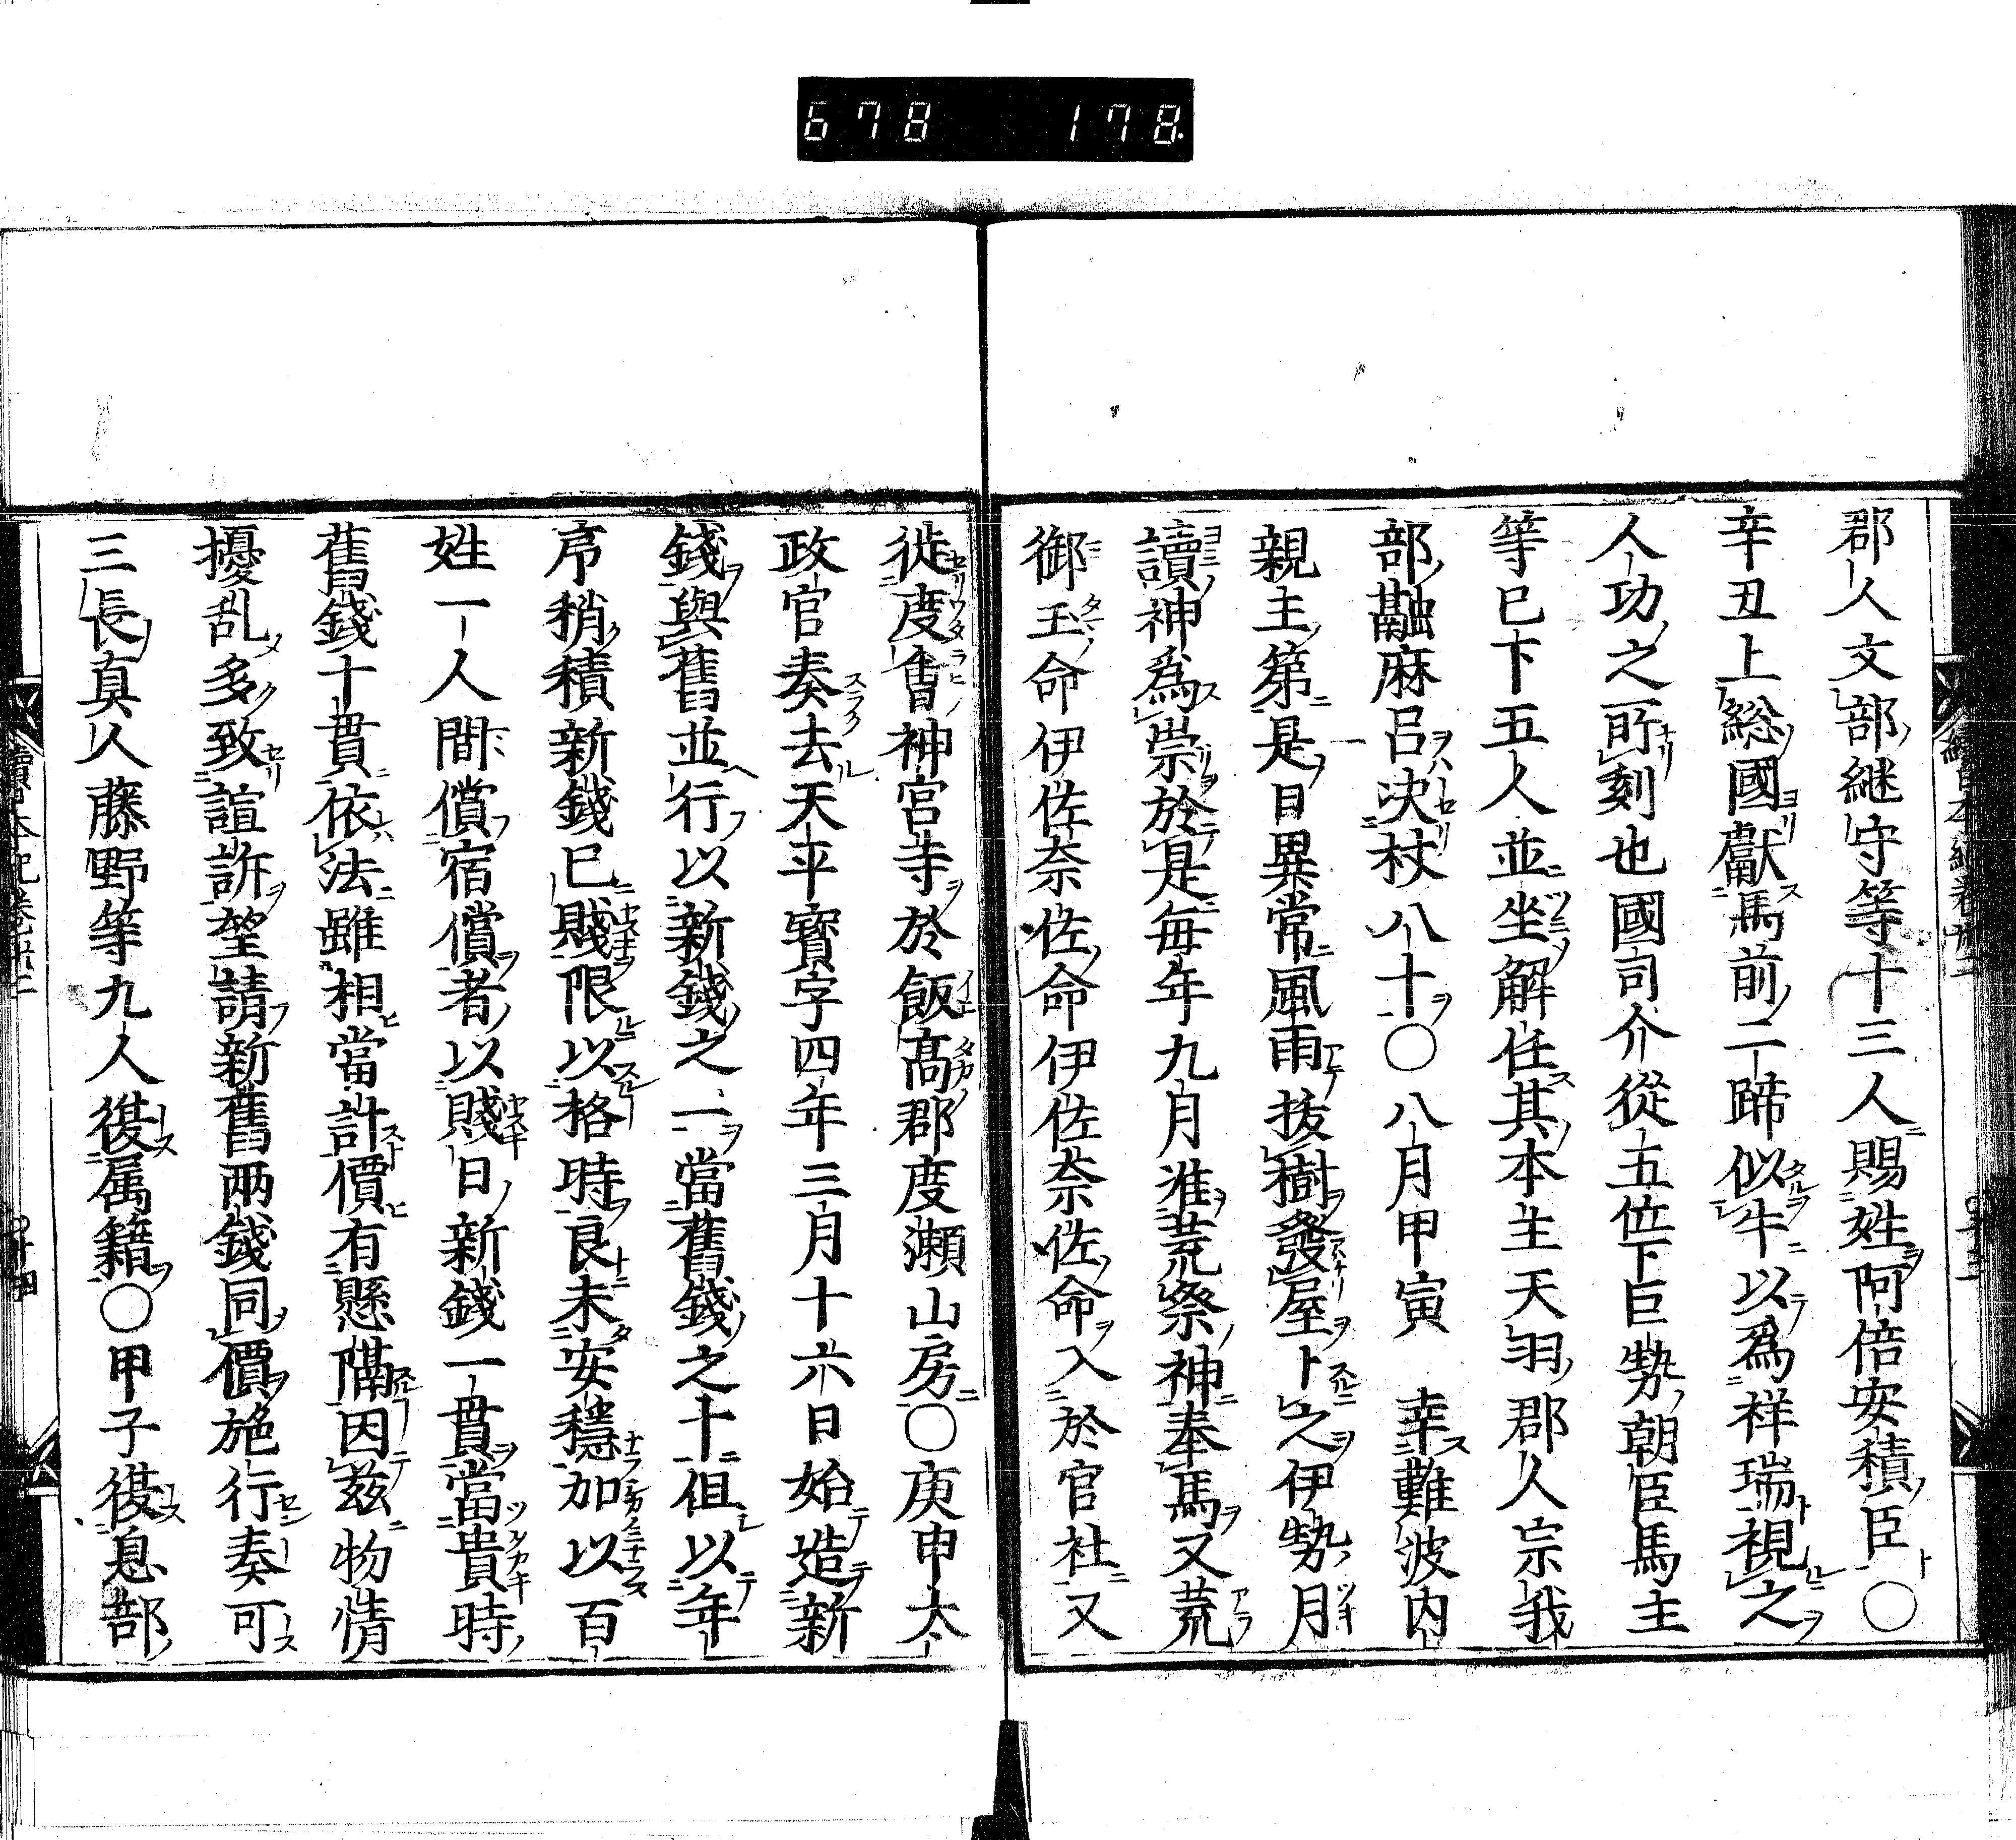 678 178
郡人文部継守等十三人賜姓阿倍安積臣○
辛丑上総國獻馬前二蹄似牛以爲祥瑞視之
人功之所刻也國司介從五位下巨勢朝臣馬主
等已下五人並坐解任其本主天羽郡人宗我
部虫麻呂決杖八十○八月甲寅 幸難波内
親主第是日異常風雨抜樹發屋卜之伊勢月
讀神爲崇於是毎年九月准荒祭神奉馬又荒
御玉命伊佐奈佐命伊佐奈佐命入於官社又
徙度會神宮寺於飯髙郡度瀬山房○庚申太
政官奏去天平寳字四年三月十六日始造新
錢與舊並行以新錢之一當舊錢之十但以年
序稍積新錢已賤限以格時良未安穩加以百
姓一人間償宿償者以賤日新錢一貫當貴時
舊錢十貫依法雖相當計價有懸隔因玆物情
擾乱多致諠訴望請新舊兩錢同價施行奏可
三長真人藤野等九人復属籍○甲子復息部